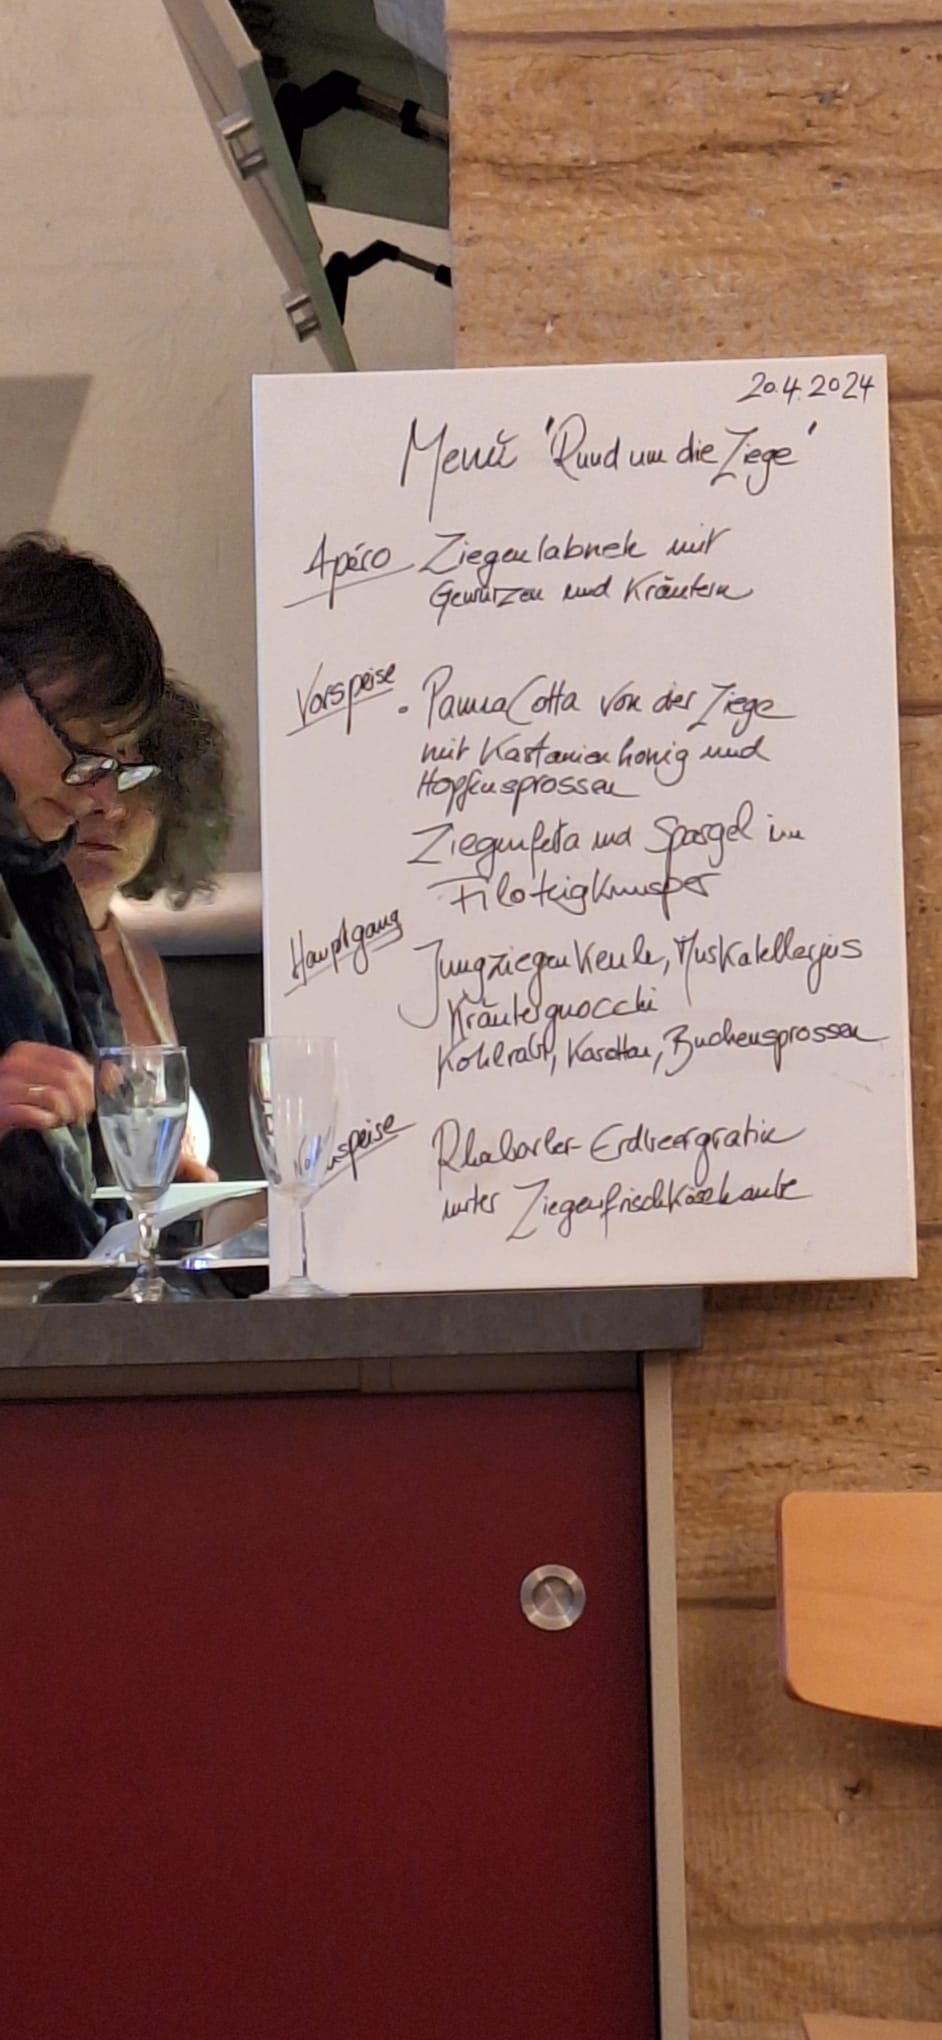 20.4.2024
Menü "Rund um die Ziege"
Apéro Ziegenlabneh mit
Gewürzen und Kräutern
Vorspeise . Panna Cotta von der Ziege
mit Kastanienhonig und
Hopfensprossen
Ziegenfeta und Spargel im
Filoteigknusper
Hauptgang Jungziegenkeule, Muskatellerjus
Kräutergnocchi
Kohlrabi, Karotten, Buchensprossen
Rhabarber-Erdbeergratin
unter Ziegenfrischkäsehaube